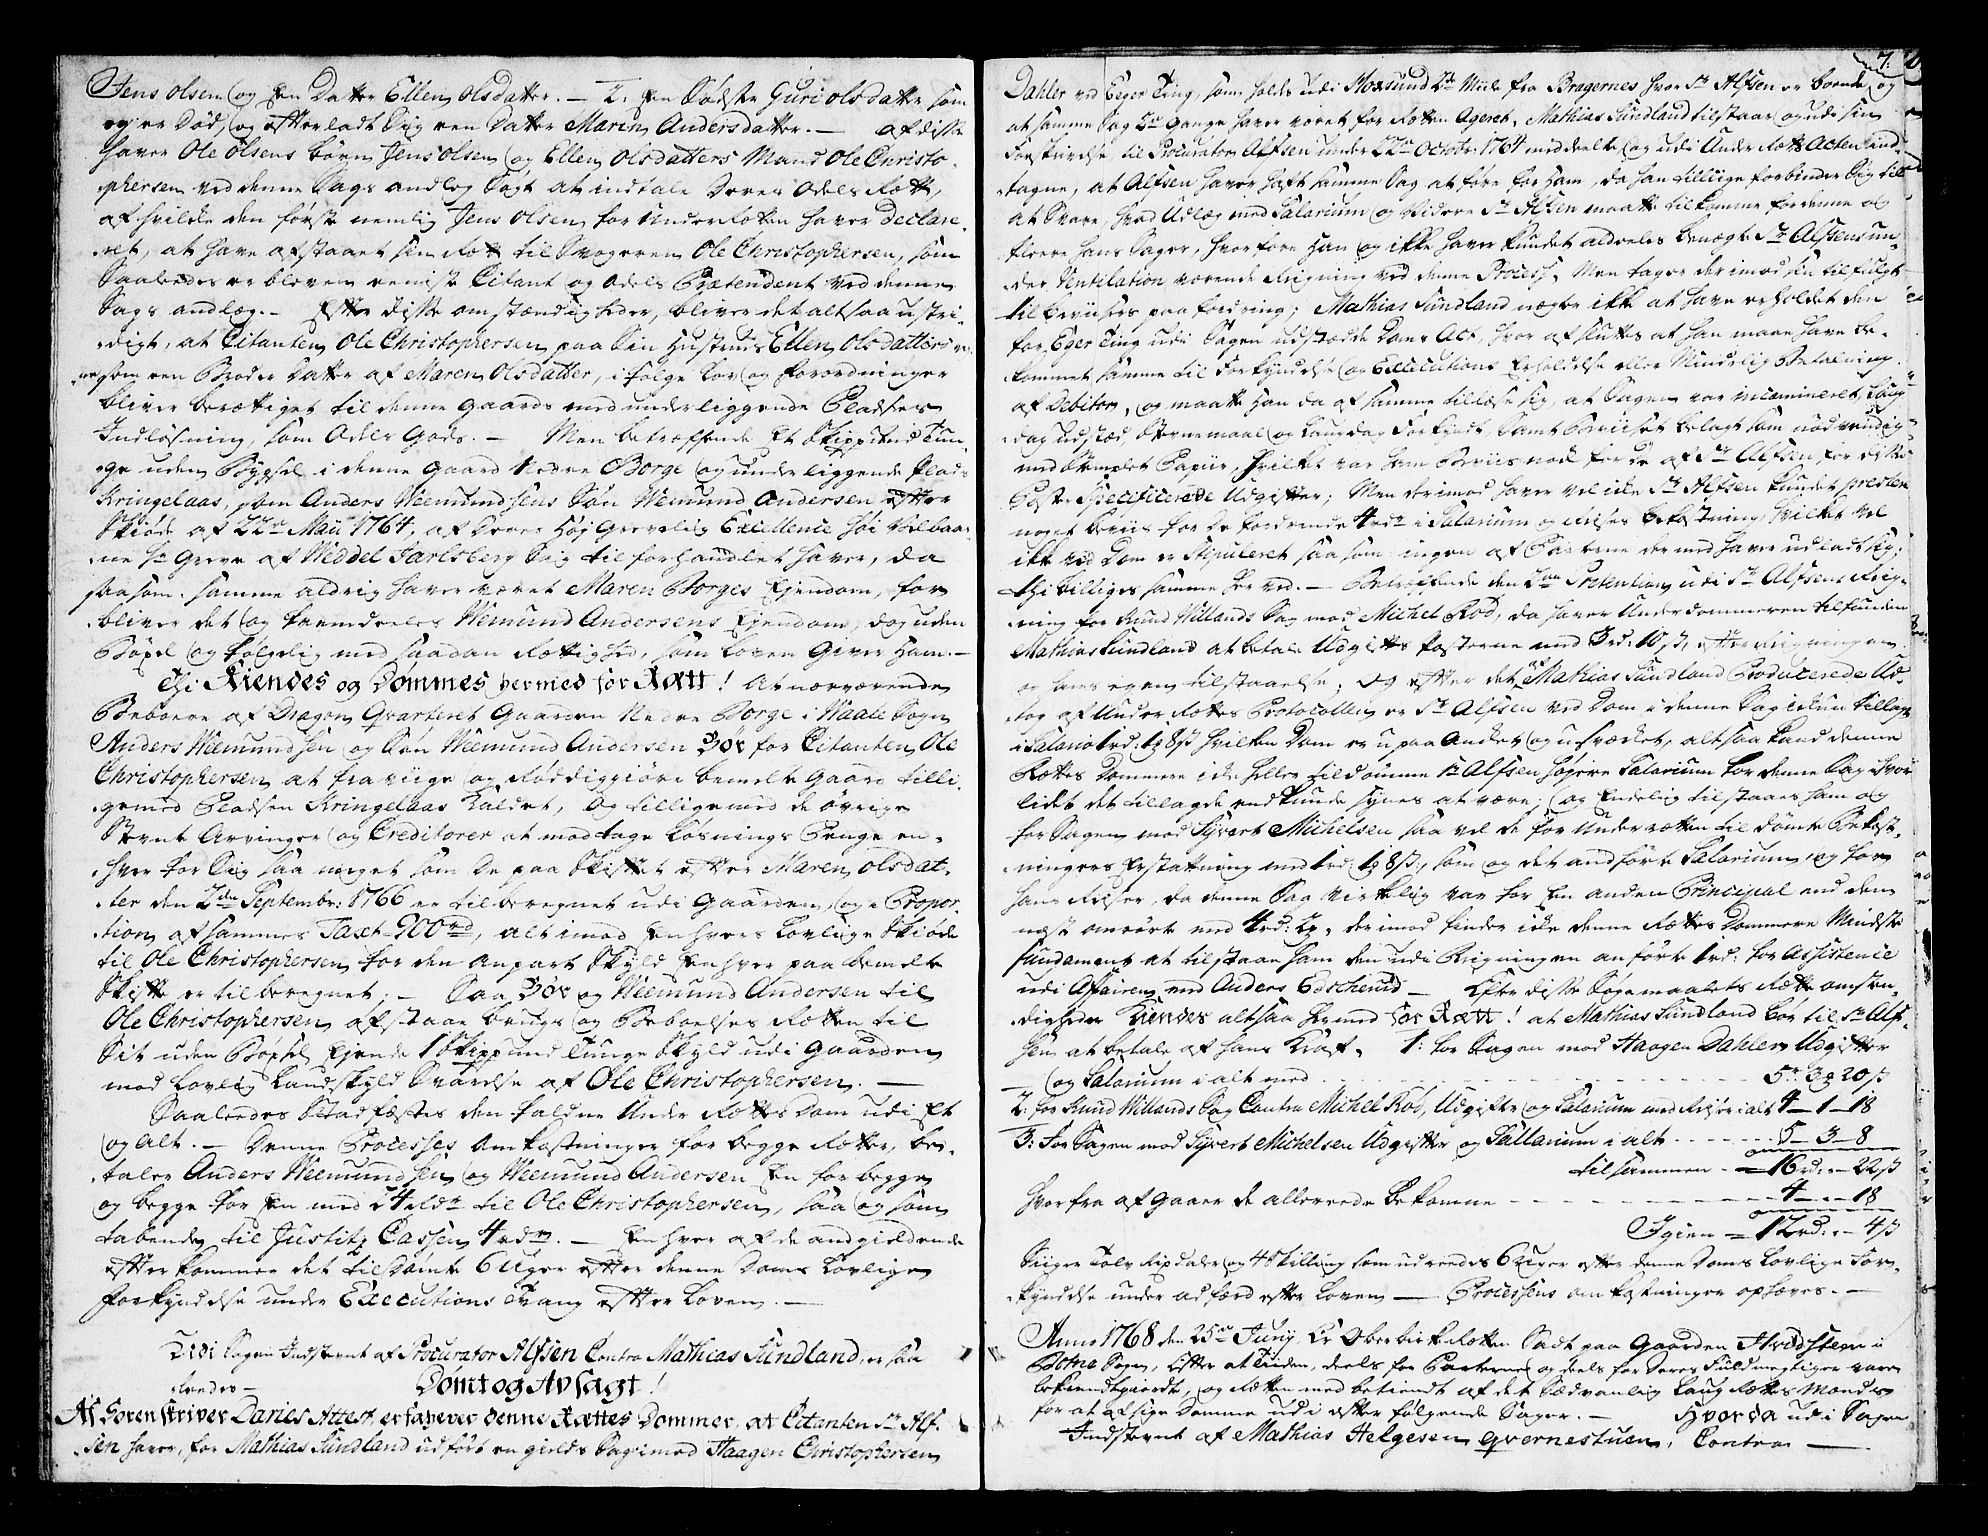 Jens olsen og een Datter Ellen olsdatter. — 2. een Södster Guri olsdatter som
og er Död, og efterladt Sig een Datter Maren Andersdatter. — af disse
haver Ole olsens börn Jens olsen og Ellen olsdatters Mand Ole Christo-
phersen ved denne Sags andlæg Sögt at indtale deres odels Rætt,
af hvilcke den först nemlig Jens olsen for Under Rætten haver Declare-
ret, at have afstaaet sin Rætt til Svogeren Ole Christophersen, som
Saaledes er bleven eeniste Citant og odels Prætendent ved denne
Sags andlæg. — Efter disse omstændigheder, bliver det altsaa ustri-
digt, at Citanten Ole Christophersen paa Sin Hustrues Ellen olsdatters
som een Broder Datter af Maren olsdatter, i fölge Lov og forordninger
bliver berættiget til denne gaards med underliggende Pladses
Indlösning, som Odels gods. — Men betreffende Et Skippund Tun-
ge uden Böxsel i denne gaard Nedre Borge og underliggende Plads
Kringelaas, som Anders Weemundsens Sön Weemund Andersen efter
Skiöde af 22de Maii 1764, af Deres Höj Grevelig Excellence höi Velbaar-
ne hr Greve af Weddel Jarlsberg Sig tilforhandlet haver, da
saasom samme aldrig haver været Maren Borges Ejendom, for-
bliver det og fremdeeles Weemund Andersens Ejendom, dog uden
Böxel og fölgelig med saadan Rættighed, som Loven Giver Ham. —
Thi Kiendes og Dommes hermed for Rætt! At nærværende
Beboere af Dragon Qvarteret Gaarden Nedre Borge i Waale Sogn
Anders Weemundsen og Sön Weemund Andersen Bör for Citanten Ole
Christophersen at fravige og Röddiggiöre bemelte gaard tilli-
gemed Pladsen Kringelaas Kaldet, og tilligemed de övrige
Stevnte Arvinger og Creditorer at modtage Lösnings Penge en-
hver for Sig saa meget som de paa Skiftet efter Maren olsdat-
ter den 2den Septembr: 1766 er tilberegnet udi Gaarden, og a Propor-
tion af sammes Taxt 900 rd, alt imod Enhvers Lovlige Skiöde
til Ole Christophersen for den anpart Skyld Enhver paa bemelte
Skifte er tilberegnet; — Saa Bör og Weemund Andersen til
Ole Christophersen afstaae brugs og Beboelses Rætten til
Sit uden Böxsel Ejende 1 Skippund Tunge Skyld udi gaarden
mod Lovlig Landskyld Svarelse af Ole Christophersen. —
Saaledes Stadfæstes den faldne Under Rætts Dom udi Et
og alt. — Denne Processes Omkostninger for begge Rætter, be-
taler Anders Weemundsen og Weemund Andersen En for begge
og begge for En med 24 rdr til Ole Christophersen, saa og som
tabende til Justitz Cassen 4 rdr. — Enhver af de andgieldende
efterkommer det tildömte 6 Uger efter denne Doms Lovlige
forkyndelse under Executions Tvang efter Loven. —
Udi Sagen Indstevnt af Procurator Alfsen Contra Mathias Sundland, er saa
leedes — Dömt og Avsagt!
Af Sorenskriver Daries Attest, erfahrer denne Rættes Dommer, at Citanten Sr Alf-
sen haver, for Mathias Sundland udfört en gields Sag imod Haagen Christophersen
7.
Dahler ved Eeger Ting, som holdes udi Hoxsund 2de Miile fra Bragernes hvor Sr Alfsen er boende, og
at samme Sag gange haver været for Rætten Ageret, Mathias Sundland tilstaar og udi sin
Forskrivelse, til Procurator Alfsen under 22de octobr: 1764 meddeelte og udi Under Retts Acten ind-
tagne, at Alfsen haver haft samme Sag at före for Ham, da han tilliige forbinder Sig til
at Svare, hvad Udlæg med Salarium og Videre Sr Alfsen maatte tilkomme for denne og
fleere hans Sager, hvorfore Han og ikke haver kundet aldeeles benægte Sr Alfsens un-
der Ventilation værende Regning ved denne Process, Men tager derimod sin tilflugt
til beviisers paafordring; Mathias Sundland nægter ikke at have erholdet den
for Eger Ting udi Sagen udstædde Doms Act, hvor af sluttes at han maae have be-
kommet samme til Forkyndelse og Executions Erholdelse eller Mindelig Betalning
af Debitor, og maatte han da af samme tillæse sig, at Sagen var incamineret, Laug
dag udstæd, Stevnemaal og Laugdag Forkyndt, Samt Beviiset belagt som nödvendig
med Stemplet Papiir, hvilket var ham Beviis nok for de af Sr Alfsen for disse
Poster Specificerede Udgifter; Men derimod haver vel icke Sr Alfsen kundet prestere
noget beviis for de fordrende 4 rdr i Salarium og Reises bekostning, hvilket vel
ikke ved Dom er Stipuleret saasom ingen af Parterne dermed haver udladt sig,
thi billiges samme her ved. — Betreffende den 2den Prætention udi Sr Alfsens Reg-
ning for Knud Willands Sag mod Michel Röd, da haver Underdommeren tilfunden
Mathias Sundland at betale Udgifts Posterne med 3 rd: 10 s, efter Regningen
og hans egen tilstaaelse; og efter det af Mathias Sundland Producerede Ud-
tog af Under Rettes Protocollen er Sr Alfsen ved Dom i denne Sag ickun tillagt
i Salario 1 rd: 1 q 8 s hvilken Dom er upaaAncket og usvæcket, altsaa kand denne
Rættes Dommere icke heller tildömme Sr Alfsen höyere Salarium for denne Sag hvor
lidet det tillagde end kunde synes at være; og Endelig tilstaaes ham og
for Sagen mod Syvert Michelsen saa vel de for Underretten tildömte Bekost-
ningers Erstattning med 1 rd: 1 q 8 s, som og det andförte Salarium, og for
hans Reiser, da denne Sag virkelig var for Een anden Principal end den
næst anrörte med 4 rd: 2 q, derimod finder icke denne Rættes Dommere Mindste
fundament at tilstaae ham den udi Regningen anförte 1 rd: for Assistence
udi Affairen med Anders Edscherud — Efter disse Sögemaalets Rette omstæn-
digheder Kiendes altsaa hermed for Rætt! at Mathias Sundland bör til Sr Alf-
sen at betale af hans Krav, 1: for Sagen mod Haagen Dahler Udgifter
— og Salarium i alt med - - - - - - - - - - 5 r 3 q 20 s
2: for Knud Willands Sag Contra Michel Röd, Udgifter og Salarium med Reiser i alt 4 — 1 — 18
3: For Sagen mod Syvert Michelsen Udgifter og Sallarium i alt - - - - - - - 5 — 3 — 8
tilsammen - = 16 rd: — 22 s
hvorfra afgaaer de allereede bekomne - - - - - - - - - - 4 — „ — 18
Igien = 12 rd: — 4 s
Siiger Tolv Rixdaler og 4 Skilling som udreedes 6 Uger efter denne Doms Lovlige For-
kyndelse under adfærd efter Loven — Processens omkostninger ophæves. —
Anno 1768 den 25de Junÿ Er OberbirkeRætten Sadt paa Gaarden Hvedsteen i
Botne Sogn, Efter at Tiiden, deels for Parterne og deels for deres Fuldmegtiger var
bekiendtgiordt, og Rætten med betiendt af det Sædvanlig Laug Rettes Mænder
for at afsige Domme udi efter fölgende Sager. — Hvorda udi Sagen
Indstevnt af Mathias Helgesen Qvernestuen, Contra —